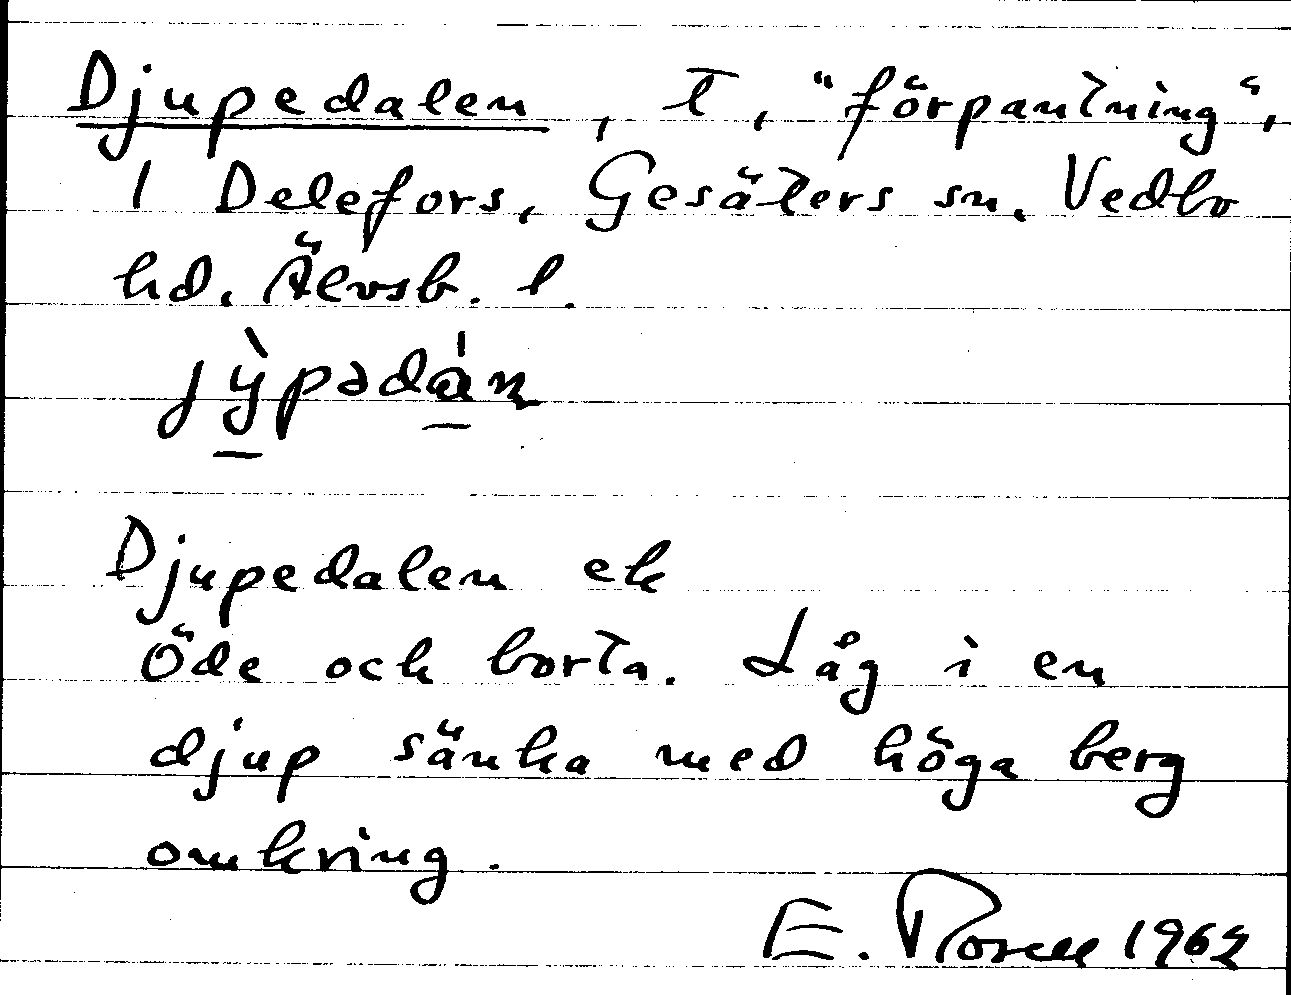 Djupedalen, t, "förpantning",
1 Delefors, Gesäters sn. Vedbo
hd. Älvsb. l.
jỳpədán
Djupedalen ek
Öde och borta. Låg i en
djup sänka med höga berg
omkring.
E. Rosell 1962